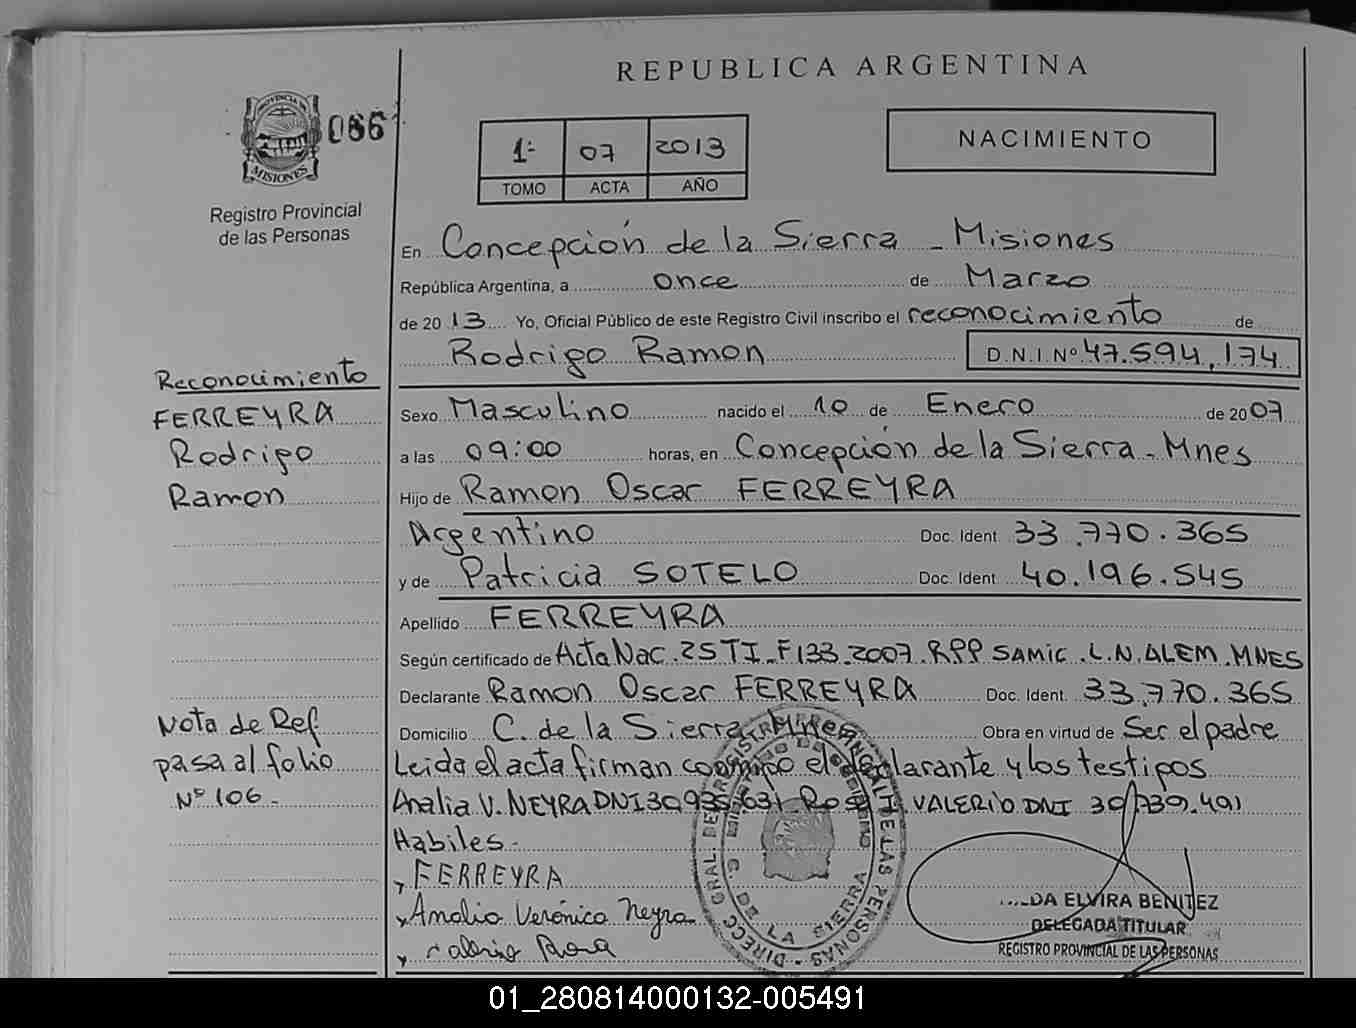 REPUBLICA ARGENTINA
PROVINCIA DE
MISIONES
066
Registro Provincial
de las Personas
1º 07 2013
TOMO ACTA AÑO
NACIMIENTO
En Concepción de la Sierra - Misiones
República Argentina, a once de Marzo
de 2013 Yo, Oficial Público de este Registro Civil inscribo el reconocimiento de
Rodrigo Ramon D.N.I. Nº 47.594.174
Sexo Masculino nacido el 10 de Enero de 2007
a las 09:00 horas, en Concepción de la Sierra - Mnes
Hijo de Ramon Oscar FERREYRA
Argentino Doc. Ident 33.770.365
y de Patricia SOTELO Doc. Ident 40.196.545
Apellido FERREYRA
Según certificado de Acta Nac. 25 TI - F133. 2007. RPP SAMIC. L.N. ALEM. MNES
Declarante Ramon Oscar FERREYRA Doc. Ident. 33.770.365
Domicilio C. de la Sierra Mnes Obra en virtud de Ser el padre
Leida el acta firman conmigo el declarante y los testigos
Analia V. NEYRA DNI 30.935.631 - VALERIO DNI 30.739.491
Habiles -
FERREYRA
Analia Verónica Neyra
Valerio Rosa
Reconocimiento
FERREYRA
Rodrigo
Ramon
Nota de Ref.
pasa al folio
Nº 106 -
DIRECC GRAL. DEL REGISTRO PROVINCIAL DE LAS PERSONAS
C. DE LA SIERRA
DA ELVIRA BENITEZ
DELEGADA TITULAR
REGISTRO PROVINCIAL DE LAS PERSONAS
01_280814000132-005491